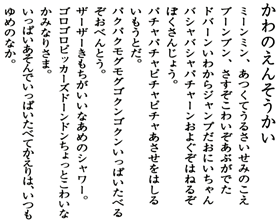 かわのえんそうかい
ミーンミン、あつくてうるさいせみのこえ
ブーンブン、さすぞこわいぞあぶがでた
ドバーンいわからジャンプだおにいちゃん
バシャバシャバチャーンおよぐぞはねるぞ
ぼくさんじょう。
バチャバチャピチャピチャあさせをはしる
いもうとだ。
パクパクモグモグゴクンゴクンいっぱいたべる
ぞおべんとう。
ザーザーきもちがいいなあめのシャワー。
ゴロゴロピッカーズドーンドンちょっとこわいな
かみなりさま。
いっぱいあそんでいっぱいたべてかえりは、いつも
ゆめのなか。